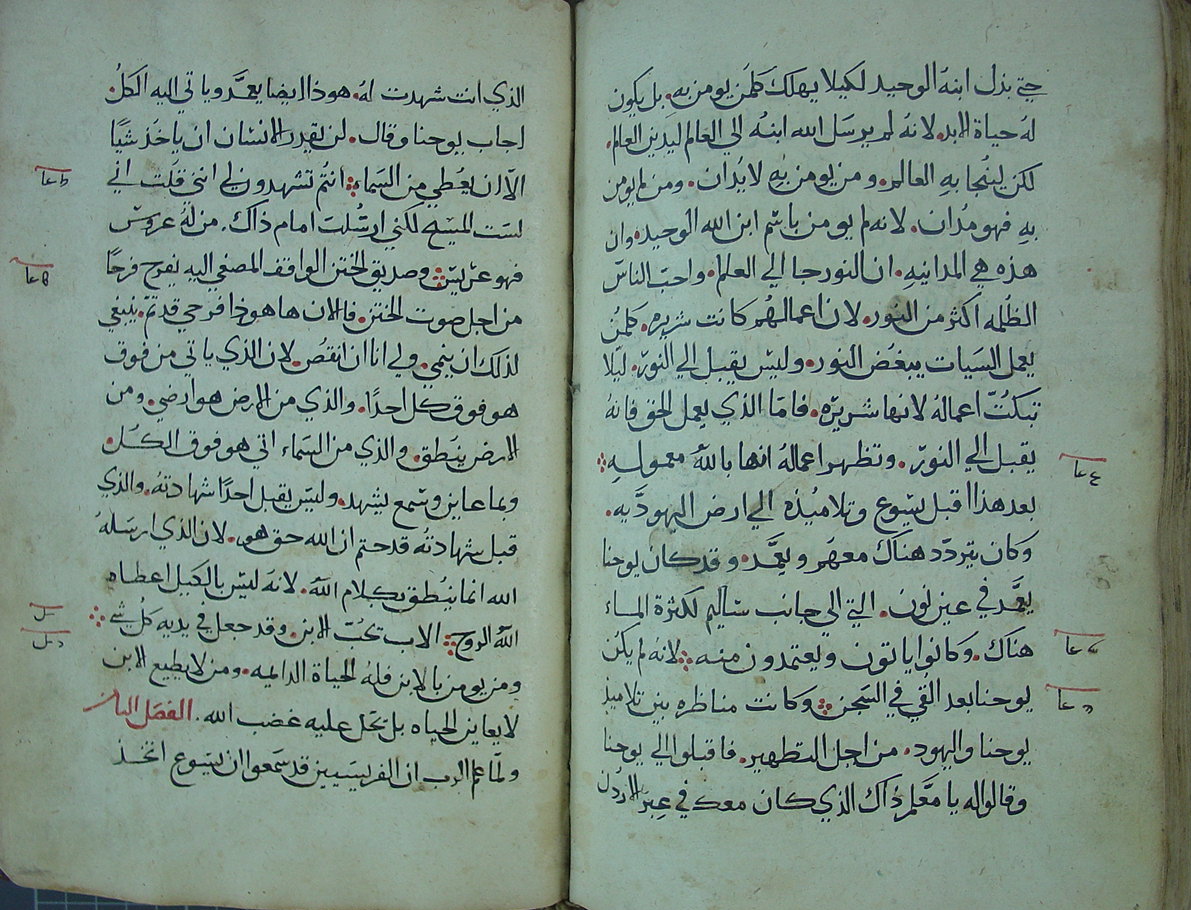 حتى بذل ابنه الوحيد لكيلا يهلك كلمن يومن به. بل يكون
له حياة الابد. لانه لم يرسل الله ابنه الى العالم ليدين العالم.
لكن لينجا به العالم. ومن يومن به لا يُدان. ومن لم يومن
به فهو مُدان. لانه لم يومن باسم ابن الله الوحيد. وان
هذه هي المداينه. ان النور جا الي العلم. واحب الناس
الظلمه اكثر من النور. لان اعمالهم كانت شريره. كلمن
يعمل السيات يبغض النور. وليس يقبل الي النور. ليلا
تبكت اعماله لانها شريره. فاما الذي يعمل الحق فانه
يقبل الي النور. وتظهر اعماله انها بالله معموله
بعد هذا اقبل يسوع وتلاميذه الي ارض اليهوديه.
وكان يتردد هناك معهم ويعمد. وقد كان يوحنا
يعمد في عين نون. التي الي جانب ساليم لكثرة الماء
هناك. وكانوا ياتون ويعتمدون منه لانه لم يكن
يوحنا بعد القي في السجن وكانت مناظره بين تلاميذ
يوحنا واليهود. من اجل التطهير. فاقبلوا الي يوحنا
وقالوا له يا معلم ذاك الذي كان معك في عبر الاردن
الذي انت شهدت له. هوذا ايضا يعمد وياتي اليه الكل
اجاب يوحنا وقال. لن يقدر الانسان ان ياخذ شيًا
الا ان يعطي من السماء انتم تشهدون لي انني قلت اني
لست المسيح لكني ارسلت امام ذاك. من له عروس
فهو عريس وصديق الختن الواقف المصغي اليه يفرح فرحًا
من اجل صوت الختن. فالان ها هوذا فرحي قد تم. ينبغي
لذلك ان ينمي. ولي انا ان انقص. لان الذي ياتي من فوق
هو فوق كل احدًا. والذي من الارض هو ارضي. ومن
الارض ينطق. والذي من السماء اتي هو فوق الكل.
وبما عاين وسمع يشهد. وليس يقبل احدًا شهادته. والذي
قبل شهادته قد ختم ان الله حق هو. لان الذي ارسله
الله انما ينطق بكلام الله. لانه ليس بالكيل اعطاه
الله الروح الاب يحب الابن. وقد جعل في يديه كل شي
ومن يومن بالابن فله الحياة الدايمه. ومن لا يطيع الابن
لا يعاين الحياه بل يحل عليه غضب الله. الفصل
ولما علم الرب ان الفريسيين قد سمعوا ان يسوع اتخذ